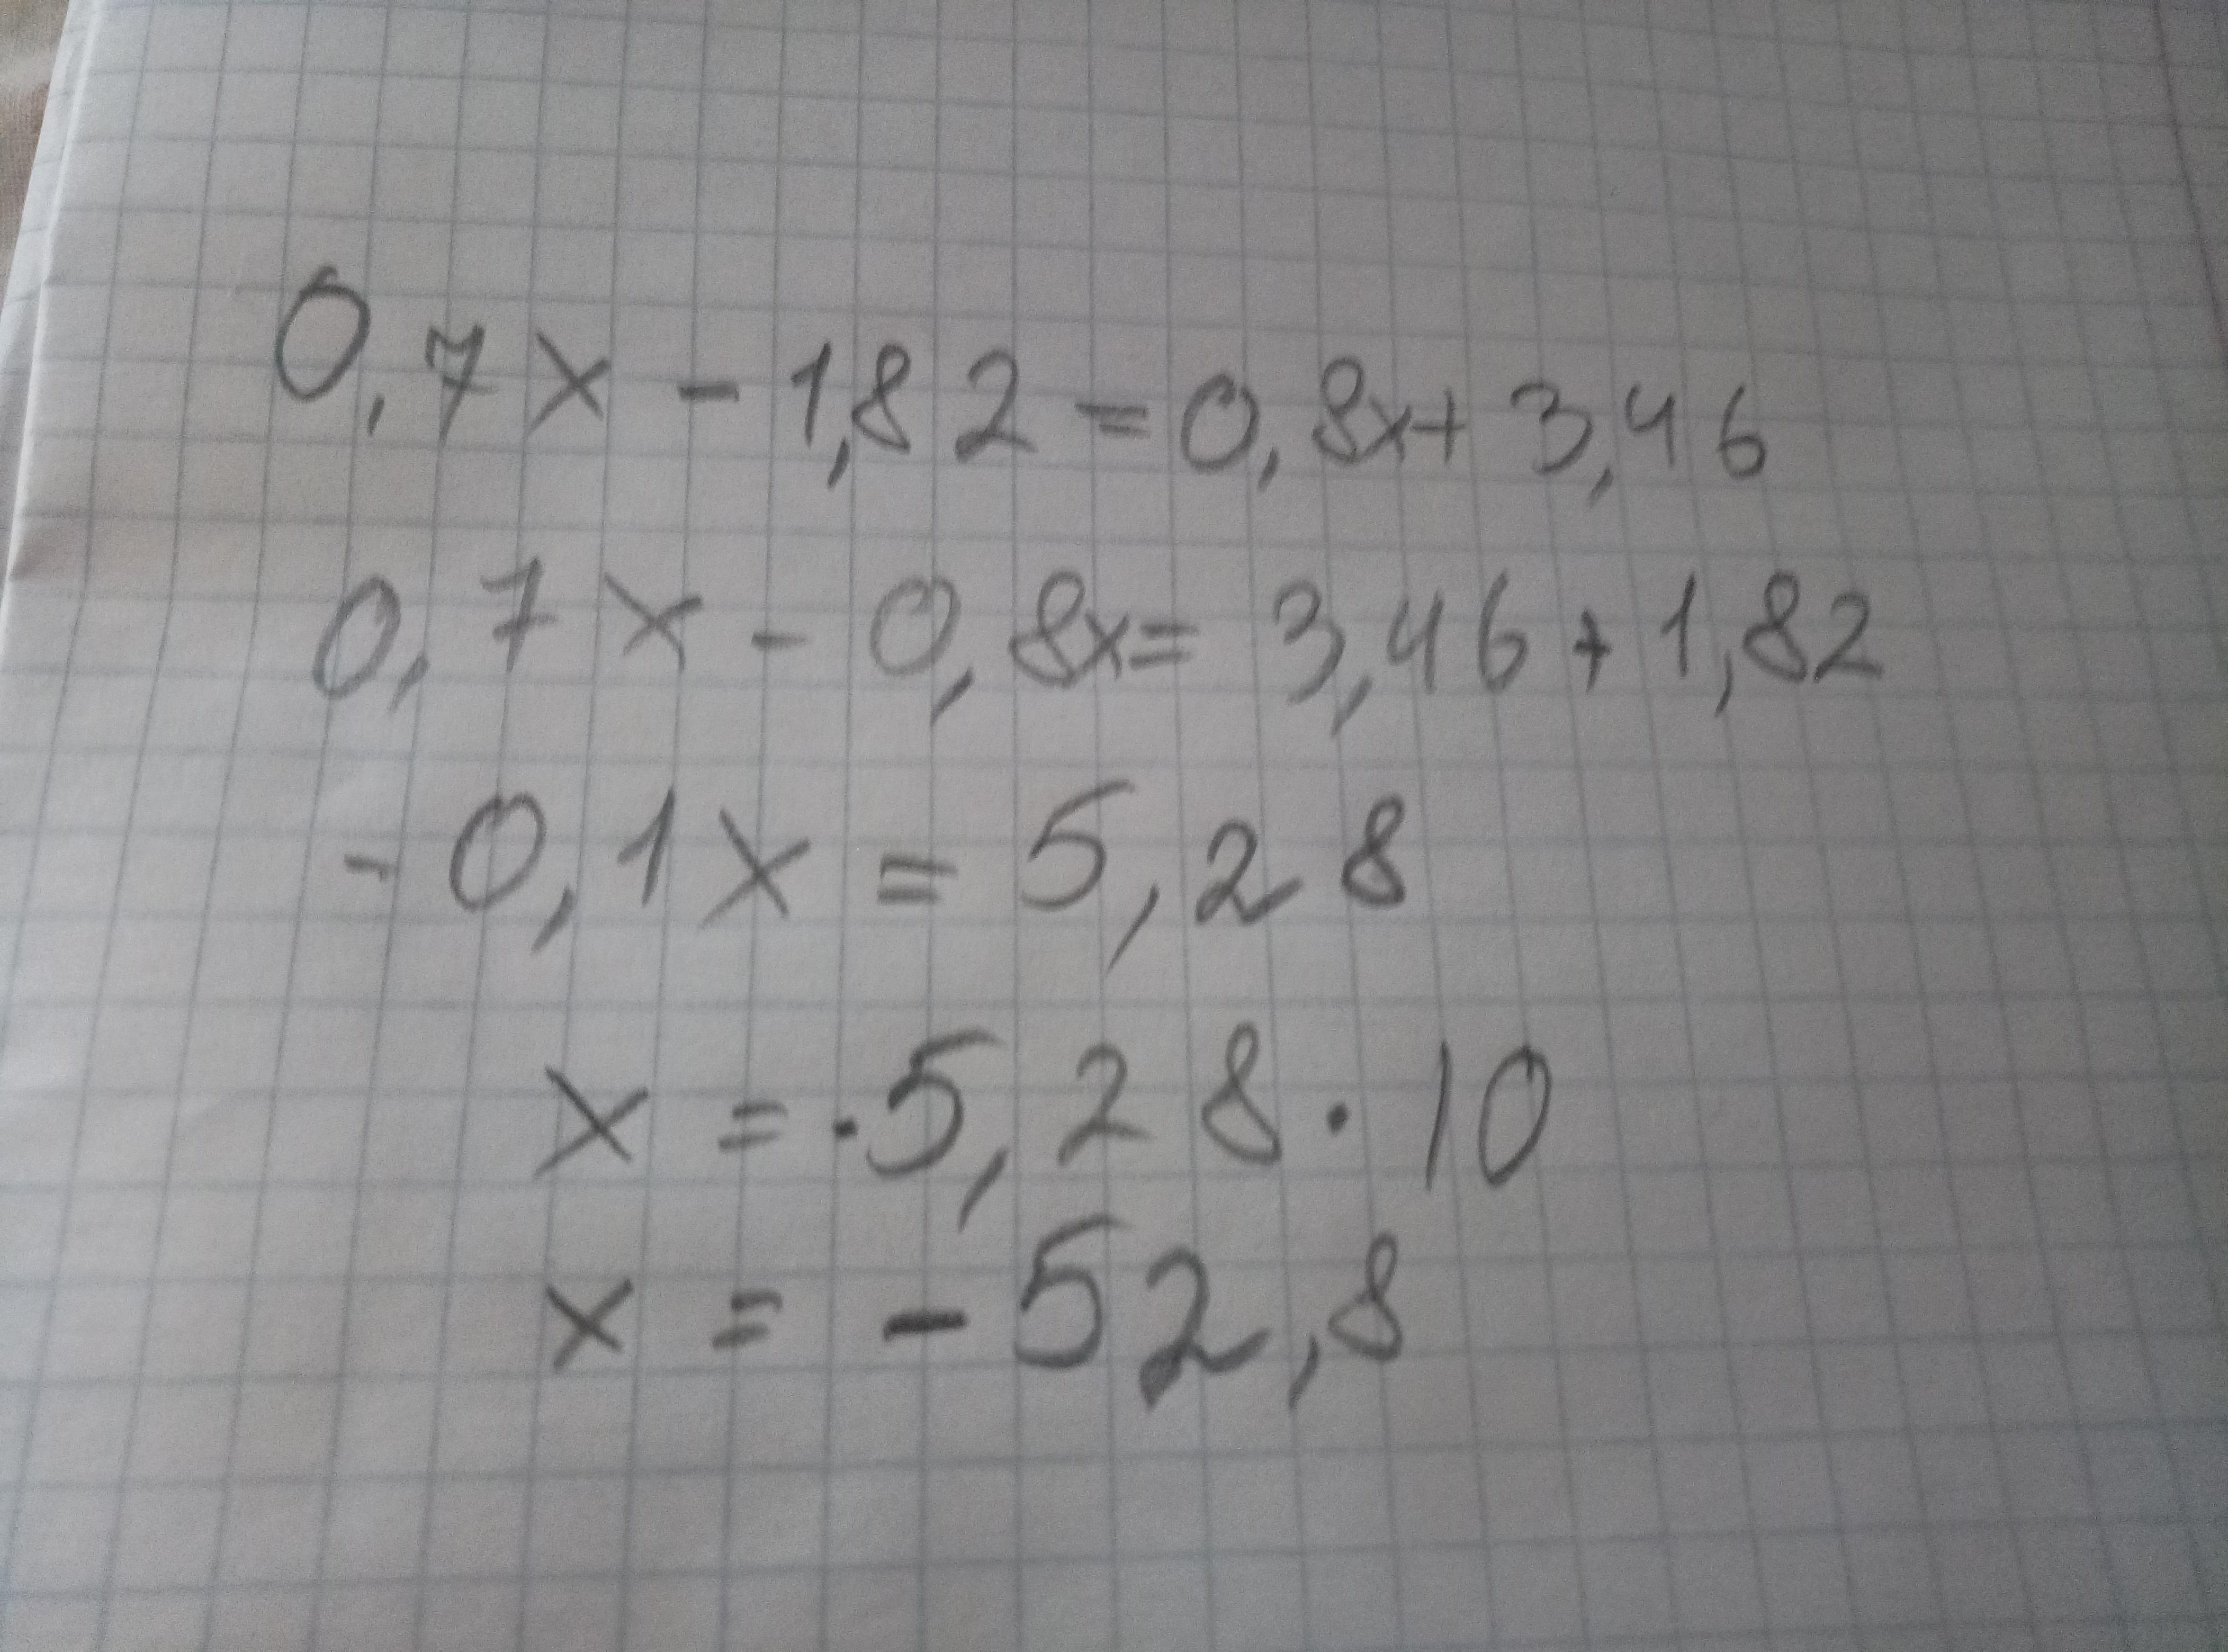 0,7x - 1,82 = 0,8x + 3,46
0,7x - 0,8x = 3,46 + 1,82
- 0,1x = 5,28
x = -5,28 · 10
x = - 52,8